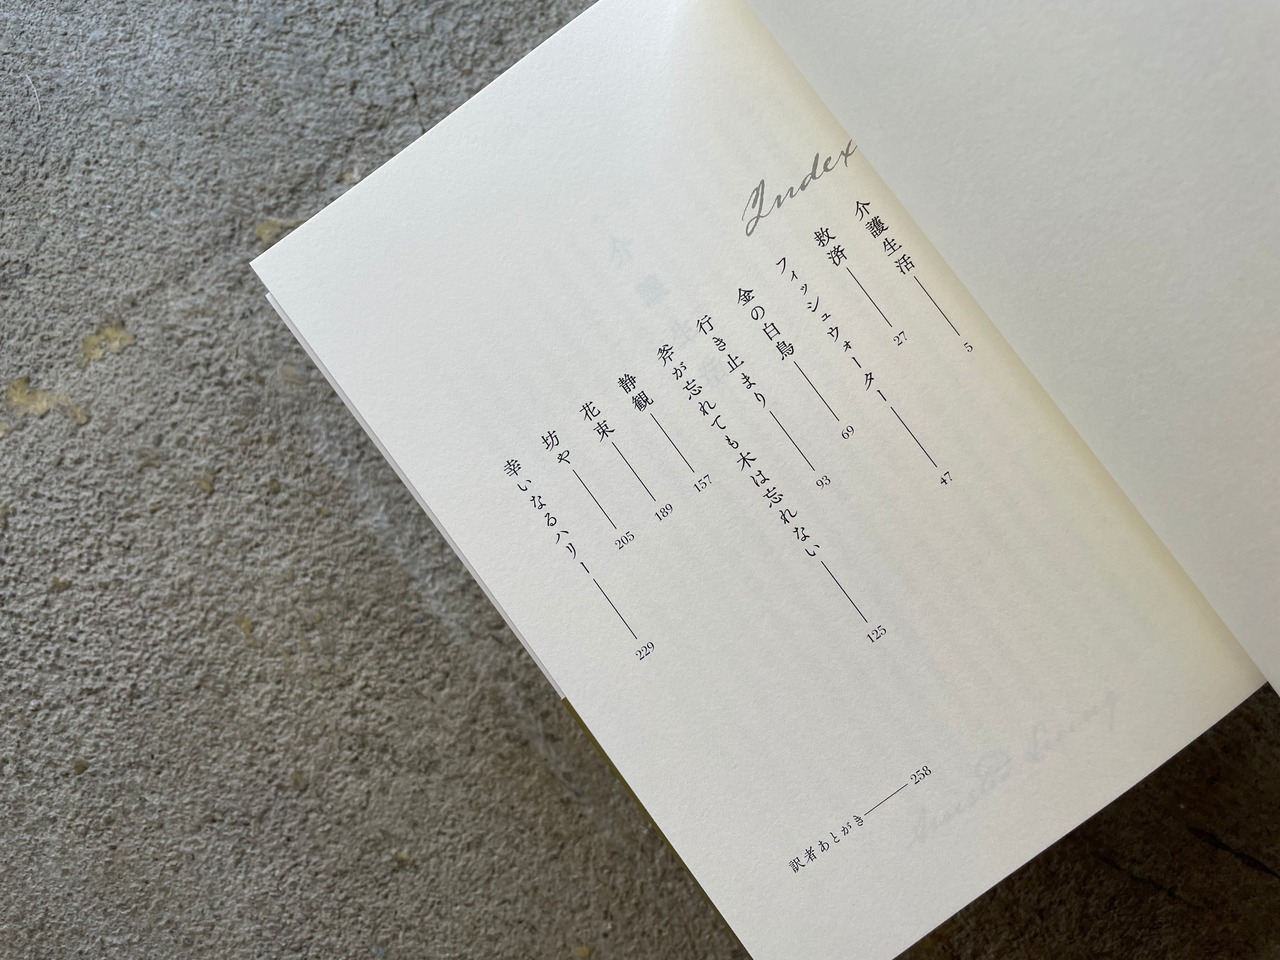 Index
介護生活 5
救済 27
フィッシュウォーター 47
金の白鳥 69
行き止まり 93
斧が忘れても木は忘れない 125
静観 157
花束 189
坊や 205
幸いなるハリー 229
訳者あとがき 258